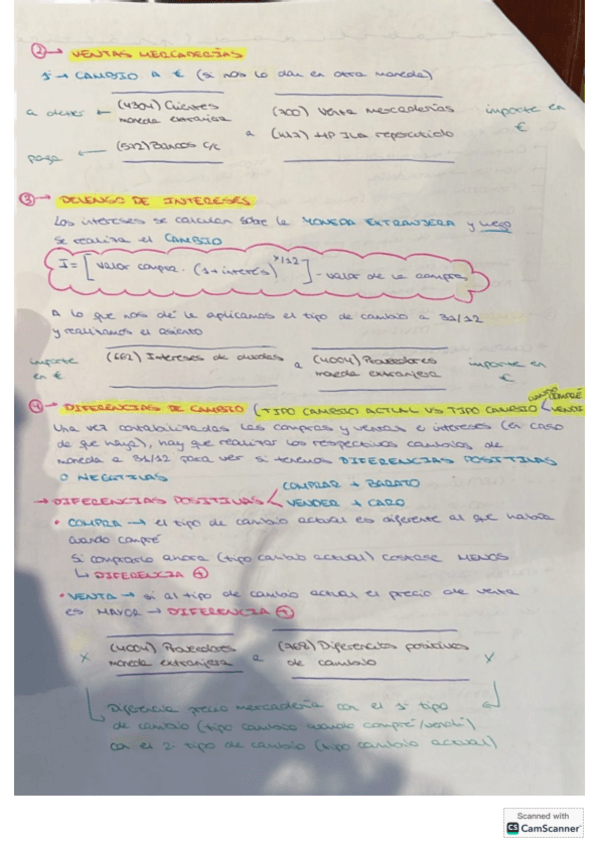 ② → VENTAS MERCADERÍAS
1º → CAMBIO A € (si nos lo dan en otra moneda)
a deber ← (4304) Clientes moneda extranjera
a
(700) Venta mercaderías
(477) HP IVA repercutido
importe en €
paga ← (572) Bancos c/c
③ → DEVENGO DE INTERESES
Los intereses se calculan sobre la MONEDA EXTRANJERA y luego
se realiza el CAMBIO
I = [ valor compra · (1 + interés)^x/12 ] - valor de la compra
A lo que nos dé le aplicamos el tipo de cambio a 31/12
y realizamos el asiento
importe en €
(662) Intereses de deudas
a
(4004) Proveedores moneda extranjera
importe en €
④ → DIFERENCIAS DE CAMBIO (TIPO CAMBIO ACTUAL VS TIPO CAMBIO
COMPRÉ
VENDÍ
Una vez contabilizadas las compras y ventas e intereses (en caso
de que haya), hay que realizar los respectivos cambios de
moneda a 31/12 para ver si tenemos DIFERENCIAS POSITIVAS
O NEGATIVAS
→ DIFERENCIAS POSITIVAS
COMPRAR + BARATO
VENDER + CARO
• COMPRA → el tipo de cambio actual es diferente al que había
cuando compré
Si comprarlo ahora (tipo cambio actual) costase MENOS
↳ DIFERENCIA ⊕
• VENTA → si al tipo de cambio actual el precio de venta
es MAYOR → DIFERENCIA ⊕
x
(4004) Proveedores moneda extranjera
a
(768) Diferencias positivas de cambio
x
Diferencia precio mercadería con el 1º tipo
de cambio (tipo cambio cuando compré/vendí)
con el 2º tipo de cambio (tipo cambio actual)
Scanned with
CS CamScanner